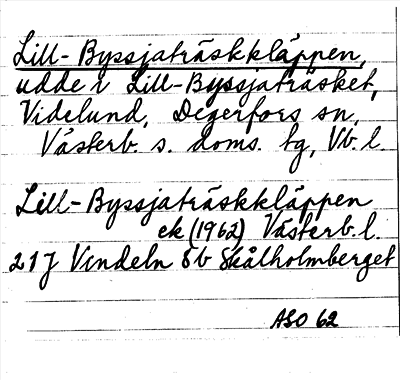 Lill-Byssjaträskkläppen,
udde i Lill-Byssjaträsket,
Videlund, Degerfors sn,
Västerb. s. doms. tg, Vb. l.
Lill-Byssjaträskkläppen
ek (1962) Västerb. l.
21J Vindeln 5b Skålholmberget
ASO 62